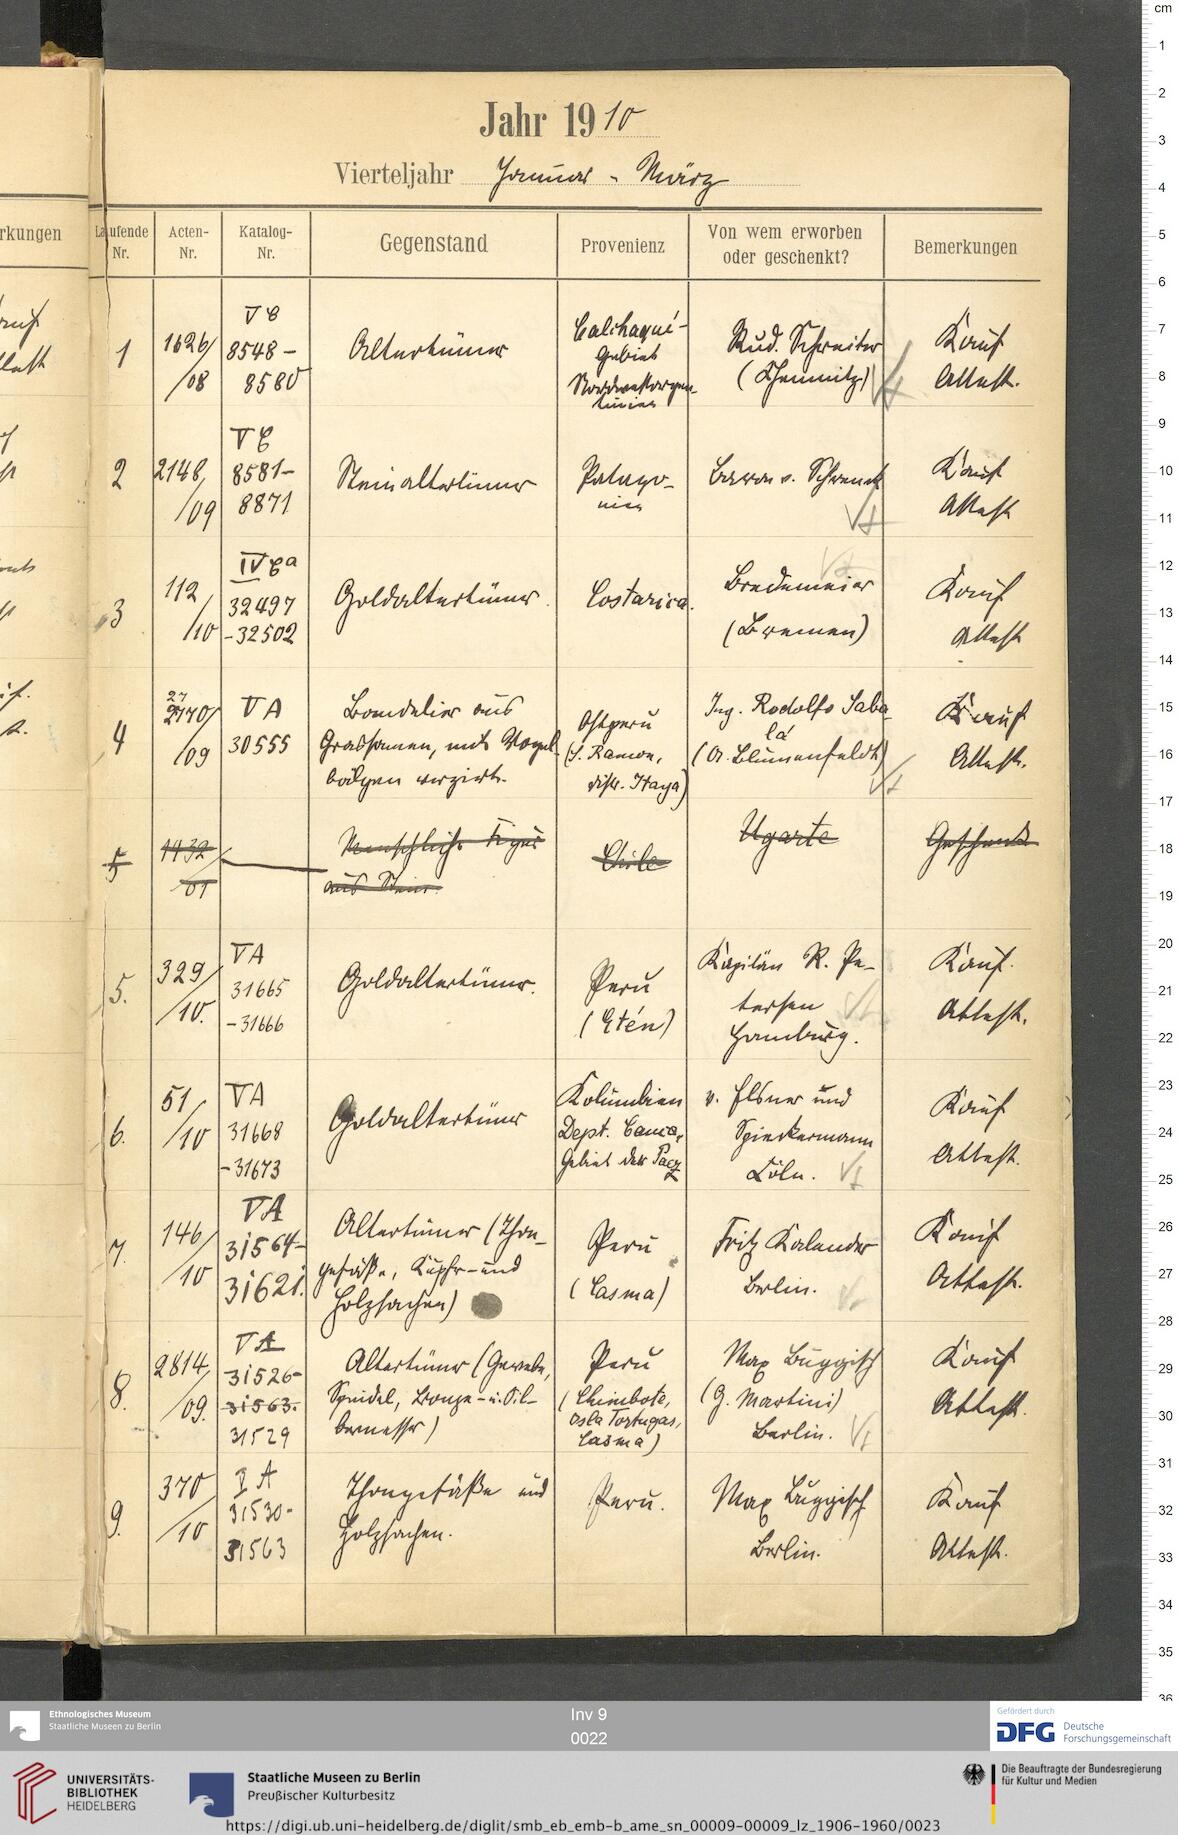 Jahr 1910
Vierteljahr Januar - März
rkungen
Laufende Nr.
Acten-Nr.
Katalog-Nr.
Gegenstand
Provenienz
Von wem erworben oder geschenkt?
Bemerkungen
1
1626/08
VC 8548-8580
Altertümer
Calchaqué-
Gebiet
Nordwestargen-
tinien
Rud. Schreiter
(Chemnitz)
Kauf
Attest.
2
2148/09
VC 8581-8871
Steinaltertümer
Patago-
nien
Baron v. Schrenck
Kauf
Attest
3
112/10
IV Ca 32497-32502
Goldaltertümer.
Costarica.
Bredemeier
(Bremen)
Kauf
Attest
4
/09
VA 30555
Bandelier aus
Grassamen, mit Vogel-
bälgen verziert.
Ostperu
(S. Ramon,
distr. Itaya)
Ing. Rodolfo Saba-
la
(A. Blumenfeldt)
Kauf
Attest.
5
1932/01
Menschliche Figur
aus Stein.
Chile
Ugarte
Geschenk
5.
329/10.
VA 31665-31666
Goldaltertümer.
Peru
(Etén)
Kapitän R. Pe-
tersen
Hamburg.
Kauf.
Attest.
6.
51/10
VA 31668-31673
Goldaltertümer
Kolumbien
Dept. Cauca,
Gebiet der Paez
v. Elsner und
Spiekermann
Cöln.
Kauf
Attest.
7.
146/10
VA 31564-31621.
Altertümer (Thon-
gefäße, Kupfer- und
Holzsachen)
Peru
(Casma)
Fritz Kalander
Berlin.
Kauf
Attest.
8.
2814/09.
VA 31526-
31563.
31529
Altertümer (Gewebe,
Spindel, Bronze- u. Sil-
bermesser)
Peru
(Chimbote,
Isla Tortugas,
Casma)
Max Buggisch
(G. Martini)
Berlin.
Kauf
Attest.
9.
370/10
VA 31530-31563
Thongefäße und
Holzsachen.
Peru.
Max Buggisch
Berlin.
Kauf
Attest.
cm
1
2
3
4
5
6
7
8
9
10
11
12
13
14
15
16
17
18
19
20
21
22
23
24
25
26
27
28
29
30
31
32
33
34
35
36
Ethnologisches Museum
Staatliche Museen zu Berlin
Inv 9
0022
Gefördert durch
DFG Deutsche
Forschungsgemeinschaft
UNIVERSITÄTS-
BIBLIOTHEK
HEIDELBERG
Staatliche Museen zu Berlin
Preußischer Kulturbesitz
Die Beauftragte der Bundesregierung
für Kultur und Medien
https://digi.ub.uni-heidelberg.de/diglit/smb_eb_emb-b_ame_sn_00009-00009_lz_1906-1960/0023